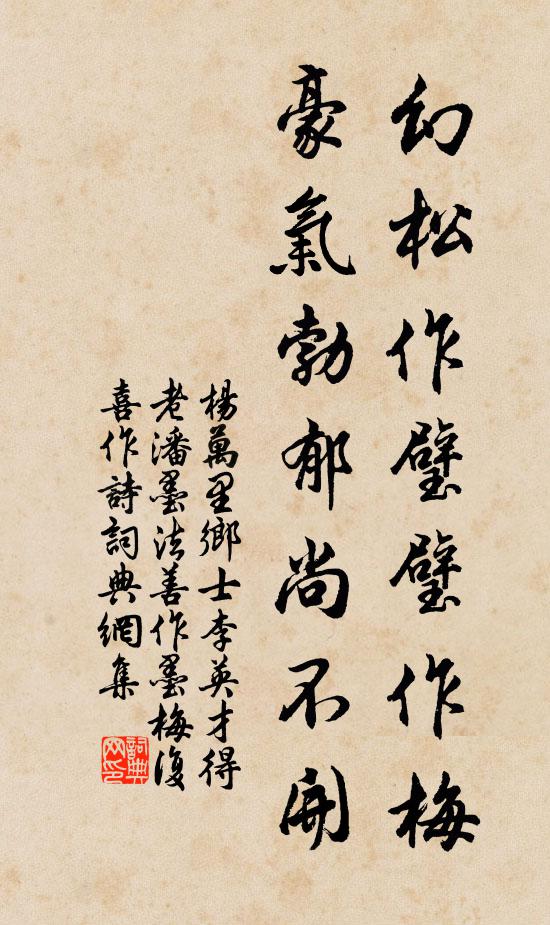 幻松作璧璧作梅
豪氣勃郁尚不開
楊萬里鄉士李英才得
老潘墨法善作墨梅復
喜作詩詞典網集
詞典
网印